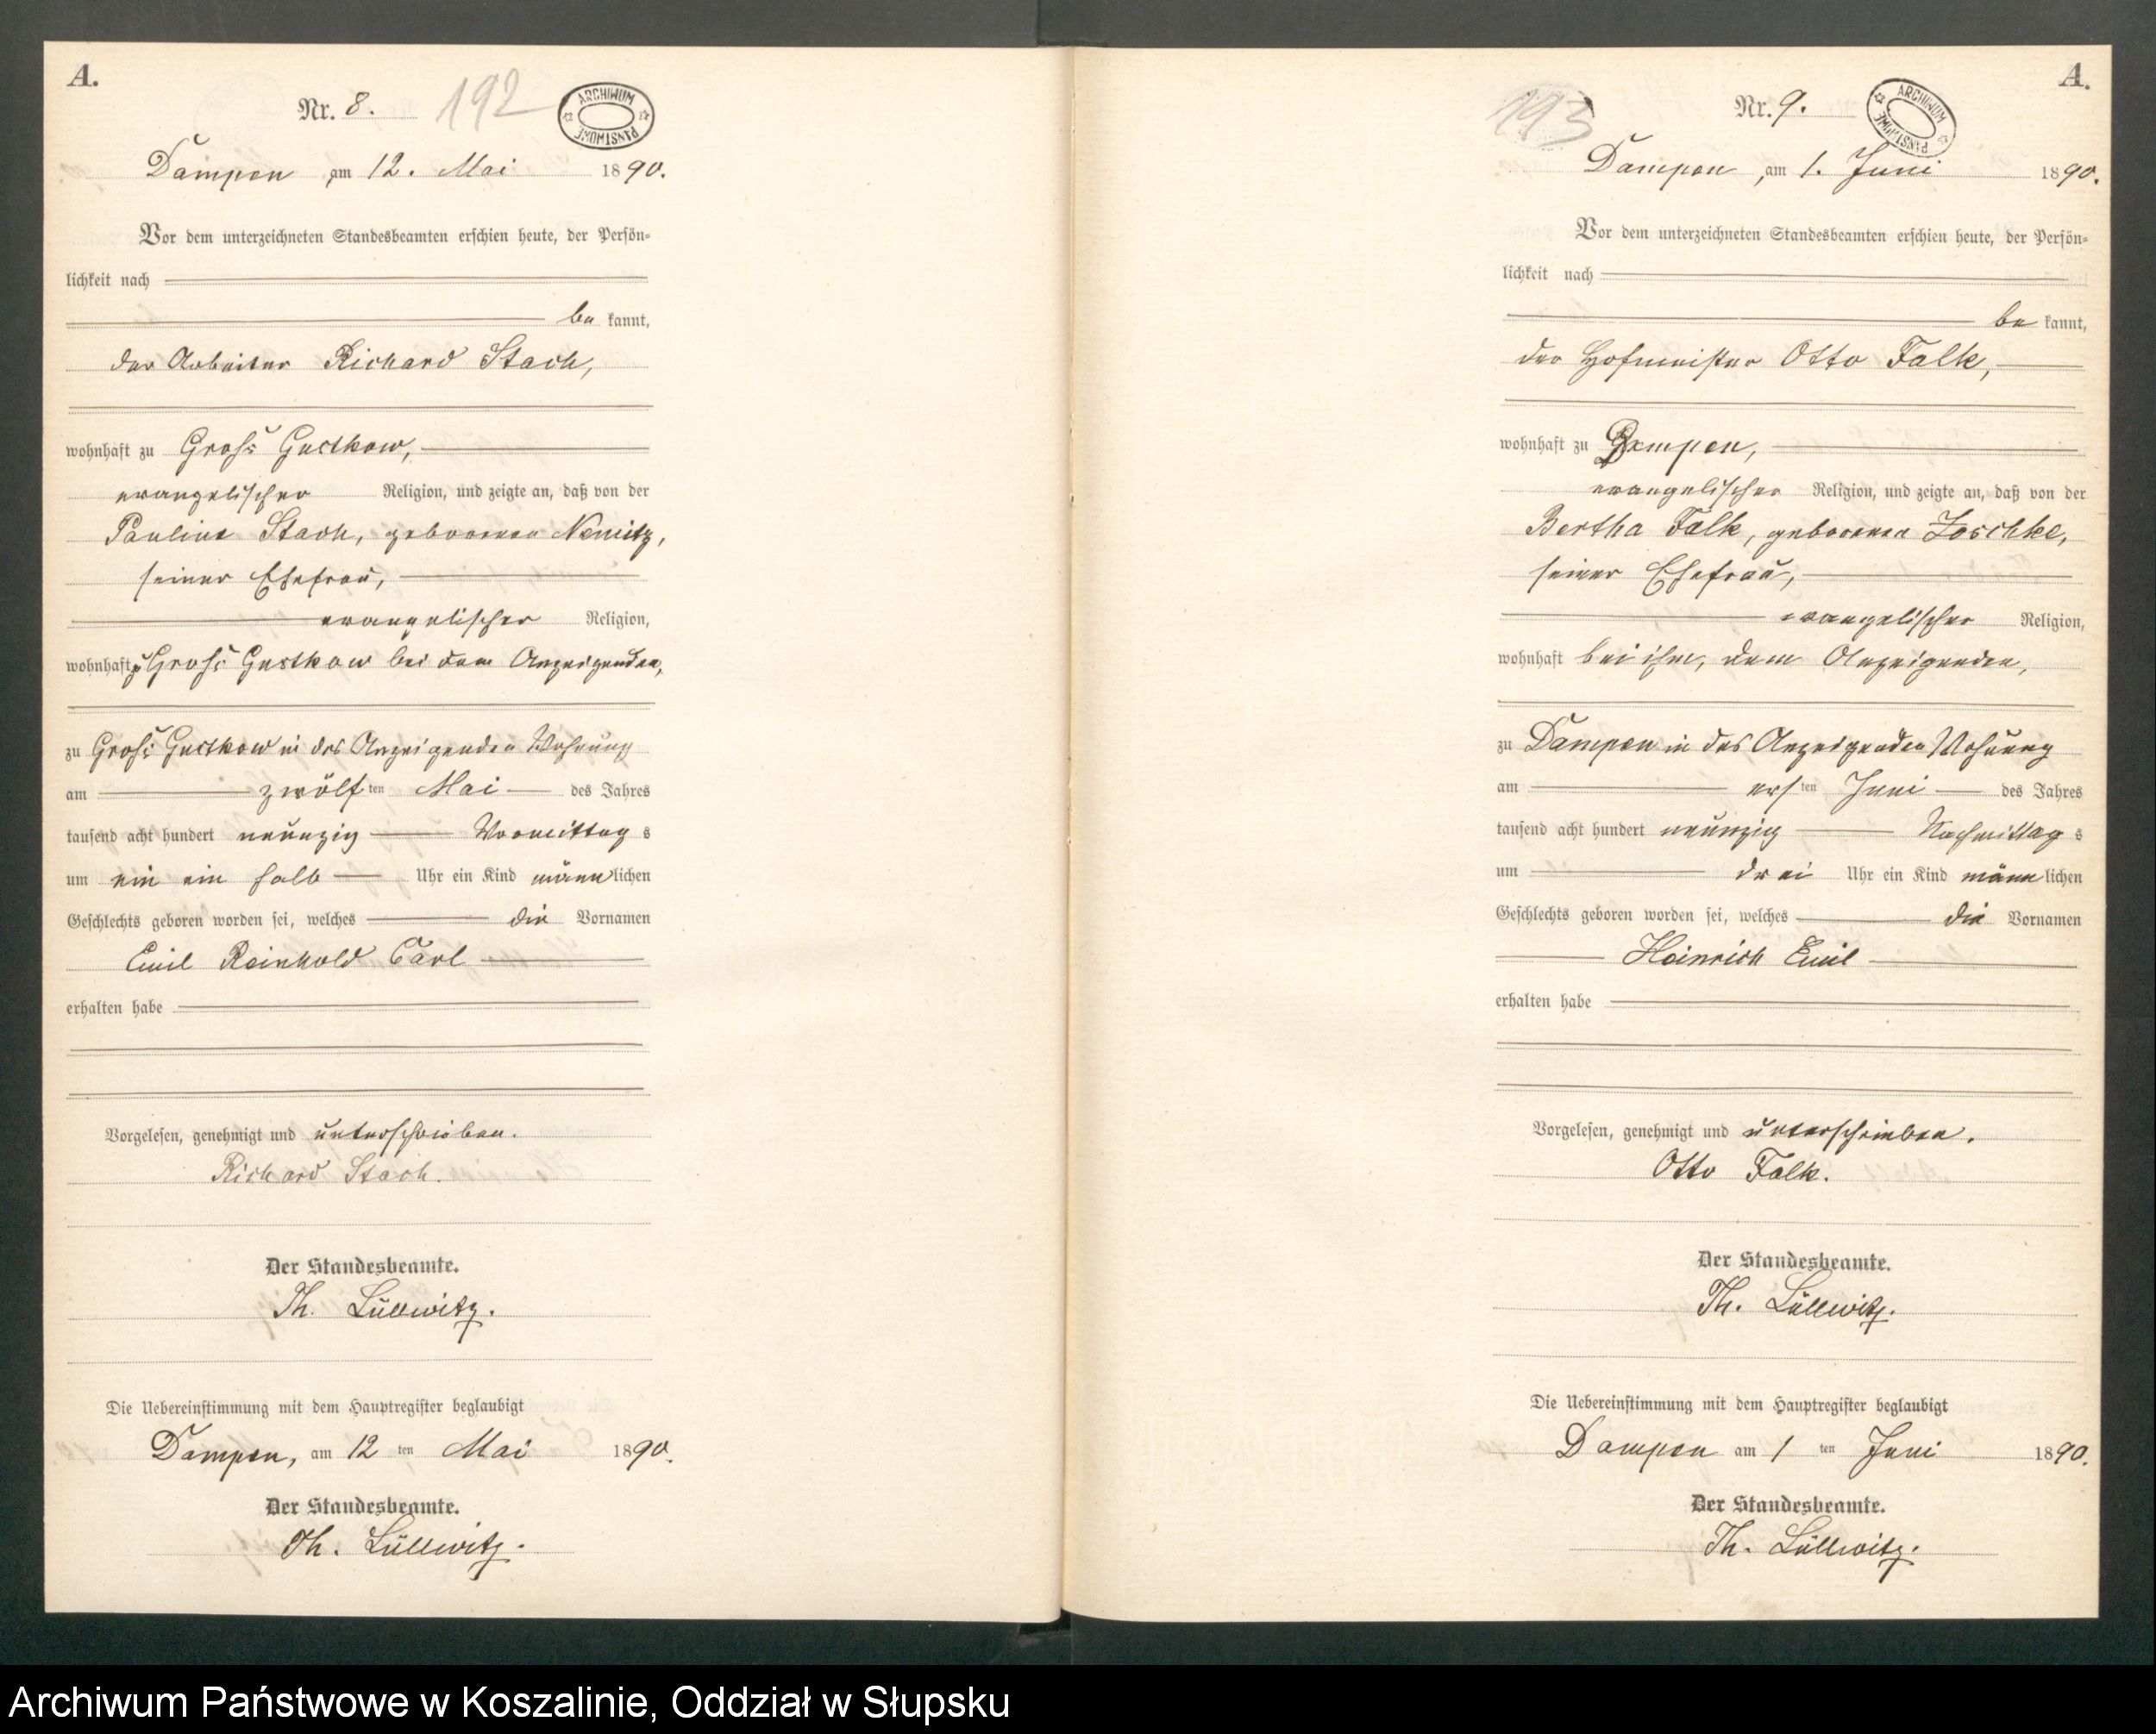 A.
Nr. 8.
192
ARCHIWUM PAŃSTWOWE
Dampen, am 12. Mai 1890.
Vor dem unterzeichneten Standesbeamten erschien heute, der Persön-
lichkeit nach
be kannt,
der Arbeiter Richard Stach,
wohnhaft zu Groß Gustkow,
evangelischer Religion, und zeigte an, daß von der
Pauline Stach, geborenen Nemitz,
seiner Ehefrau,
evangelischer Religion,
wohnhaft zu Groß Gustkow bei dem Anzeigenden,
zu Groß Gustkow in des Anzeigenden Wohnung
am zwölf ten Mai des Jahres
tausend acht hundert neunzig Vormittag s
um ein ein halb Uhr ein Kind männ lichen
Geschlechts geboren worden sei, welches die Vornamen
Emil Reinhold Carl
erhalten habe
Vorgelesen, genehmigt und unterschrieben.
Richard Stach.
Der Standesbeamte.
Th. Lüllwitz.
Die Uebereinstimmung mit dem Hauptregister beglaubigt
Dampen, am 12 ten Mai 1890.
Der Standesbeamte.
Th. Lüllwitz.
A.
193
Nr. 9.
ARCHIWUM PAŃSTWOWE
Dampen, am 1. Juni 1890.
Vor dem unterzeichneten Standesbeamten erschien heute, der Persön-
lichkeit nach
be kannt,
der Hofmeister Otto Falk,
wohnhaft zu Dampen,
evangelischer Religion, und zeigte an, daß von der
Bertha Falk, geborenen Joschke,
seiner Ehefrau,
evangelischer Religion,
wohnhaft bei ihm, dem Anzeigenden,
zu Dampen in des Anzeigenden Wohnung
am ers ten Juni des Jahres
tausend acht hundert neunzig Nachmittag s
um drei Uhr ein Kind männ lichen
Geschlechts geboren worden sei, welches die Vornamen
Heinrich Emil
erhalten habe
Vorgelesen, genehmigt und unterschrieben.
Otto Falk.
Der Standesbeamte.
Th. Lüllwitz.
Die Uebereinstimmung mit dem Hauptregister beglaubigt
Dampen am 1 ten Juni 1890.
Der Standesbeamte.
Th. Lüllwitz.
Archiwum Państwowe w Koszalinie, Oddział w Słupsku